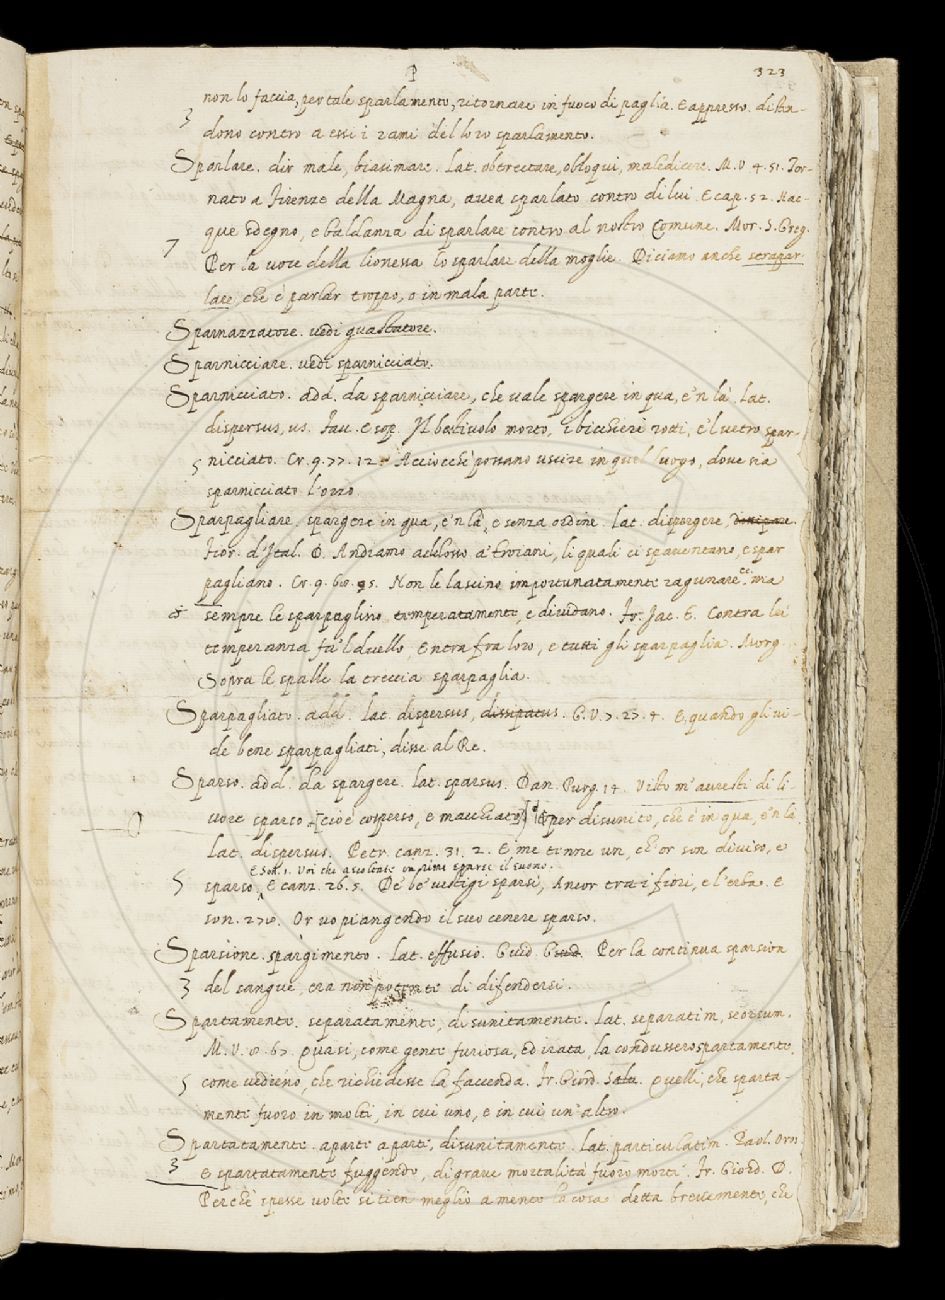 P 323
non lo faccia, per tale sparlamento, ritornare in fuoco di paglia. E appresso. disten-
3 dono contro a essi i rami del loro sparlamento.
Sparlare. dir male, biasimare. Lat. obtrectare, obloqui, maledicere. M.V. 4. 51. Tor-
nato a Firenze della Magna, avea sparlato contro di lui. E cap. 52. Nac-
que sdegno, e baldanza di sparlare contro al nostro Comune. Mor. S. Greg.
7 Per la voce della lionessa lo sparlare della moglie. Diciamo anche strapar-
lare, che è parlar troppo, o in mala parte.
Sparnazzatore. vedi guastatore.
Sparnicciare. vedi sparnicciato.
Sparnicciato. add. da sparnicciare, che vale spargere in qua, e 'n là. Lat.
dispersus, us. Fav. Esop. Il bestivolo morto, i bicchieri rotti, e 'l vetro spar-
5 nicciato. Cr. 9. 77. 12. Acciocchè possano uscire in quel luogo, dove sia
sparnicciato l'orzo.
Sparpagliare. spargere in qua, e 'n là, e senza ordine. Lat. dispergere, dissipare.
Fior. d'Ital. D. Andiamo addosso a' troiani, li quali ci spaventano, e spar
pagliano. Cr. 9. 95. Non le lascino importunatamente ragunare ec. ma
sempre le sparpaglino temperatamente, e dividano. Fr. Jac. T. Contra lei
temperanza fa 'l duello, Entra fra loro, e tutti gli sparpaglia. Morg.
Sopra le spalle la treccia sparpaglia.
Sparpagliato. add. Lat. dispersus, dissipatus. G.V. 7. 27. 4. E quando gli vi-
de bene sparpagliati, disse al Re.
Sparso. add. da spargere. Lat. sparsus. Dan. Purg. 14. Visto m'avresti di li-
vore sparso. [cioè cosperso, e macchiato] per disunito, che è in qua, e 'n là.
Lat. dispersus. Petr. canz. 31. 2. E me tenne un, ch'or son diviso, e
E Son. 1. Voi che ascoltate in rime sparse il suono.
5 sparso. E canz. 26. 5. De' be' vestigi sparsi, Ancor tra i fiori, e l'erba. E
son. 270. Or vo piangendo il suo cenere sparso.
Sparsione. spargimento. Lat. effusio. Guid. Giud. Per la continua sparsion
3 del sangue, era non potente di difendersi.
Spartamente. separatamente, disunitamente. Lat. separatim, seorsum.
M.V. 8. 67. Quasi, come gente furiosa, ed irata, la condussero spartamente,
5 come vedieno, che richiedesse la faccenda. Fr. Giord. Salv. Quelli, che sparta-
mente fuoro in molti, in cui uno, e in cui un'altro.
Spartatamente. a parte a parte, disunitamente. Lat. particulatim. Paol. Oros.
3 e spartatamente fuggendo, di grave mortalità fuoro morti. Fr. Giord. D.
Perchè spesse volte si tien meglio a mente la cosa detta brevemente, che